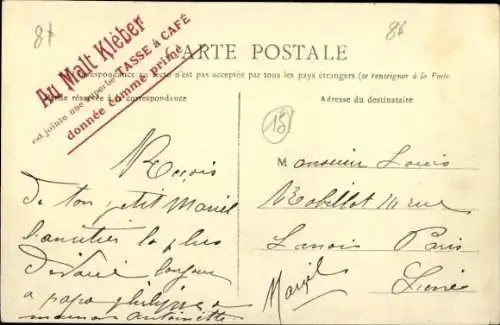 86
86
Au Malt Kléber
est jointe une superbe TASSE à CAFÉ
donnée comme prime
CARTE POSTALE
correspondance au recto n'est pas acceptée par tous les pays étrangers (se renseigner à la Poste
réservée à la correspondance
Adresse du destinataire
15
Reçois
de ton petit Marcel
l'amitier la plus
a papa philippe a
maman antoinette
Monsieur Louis
Robillot 111 rue
Paris
Marcel